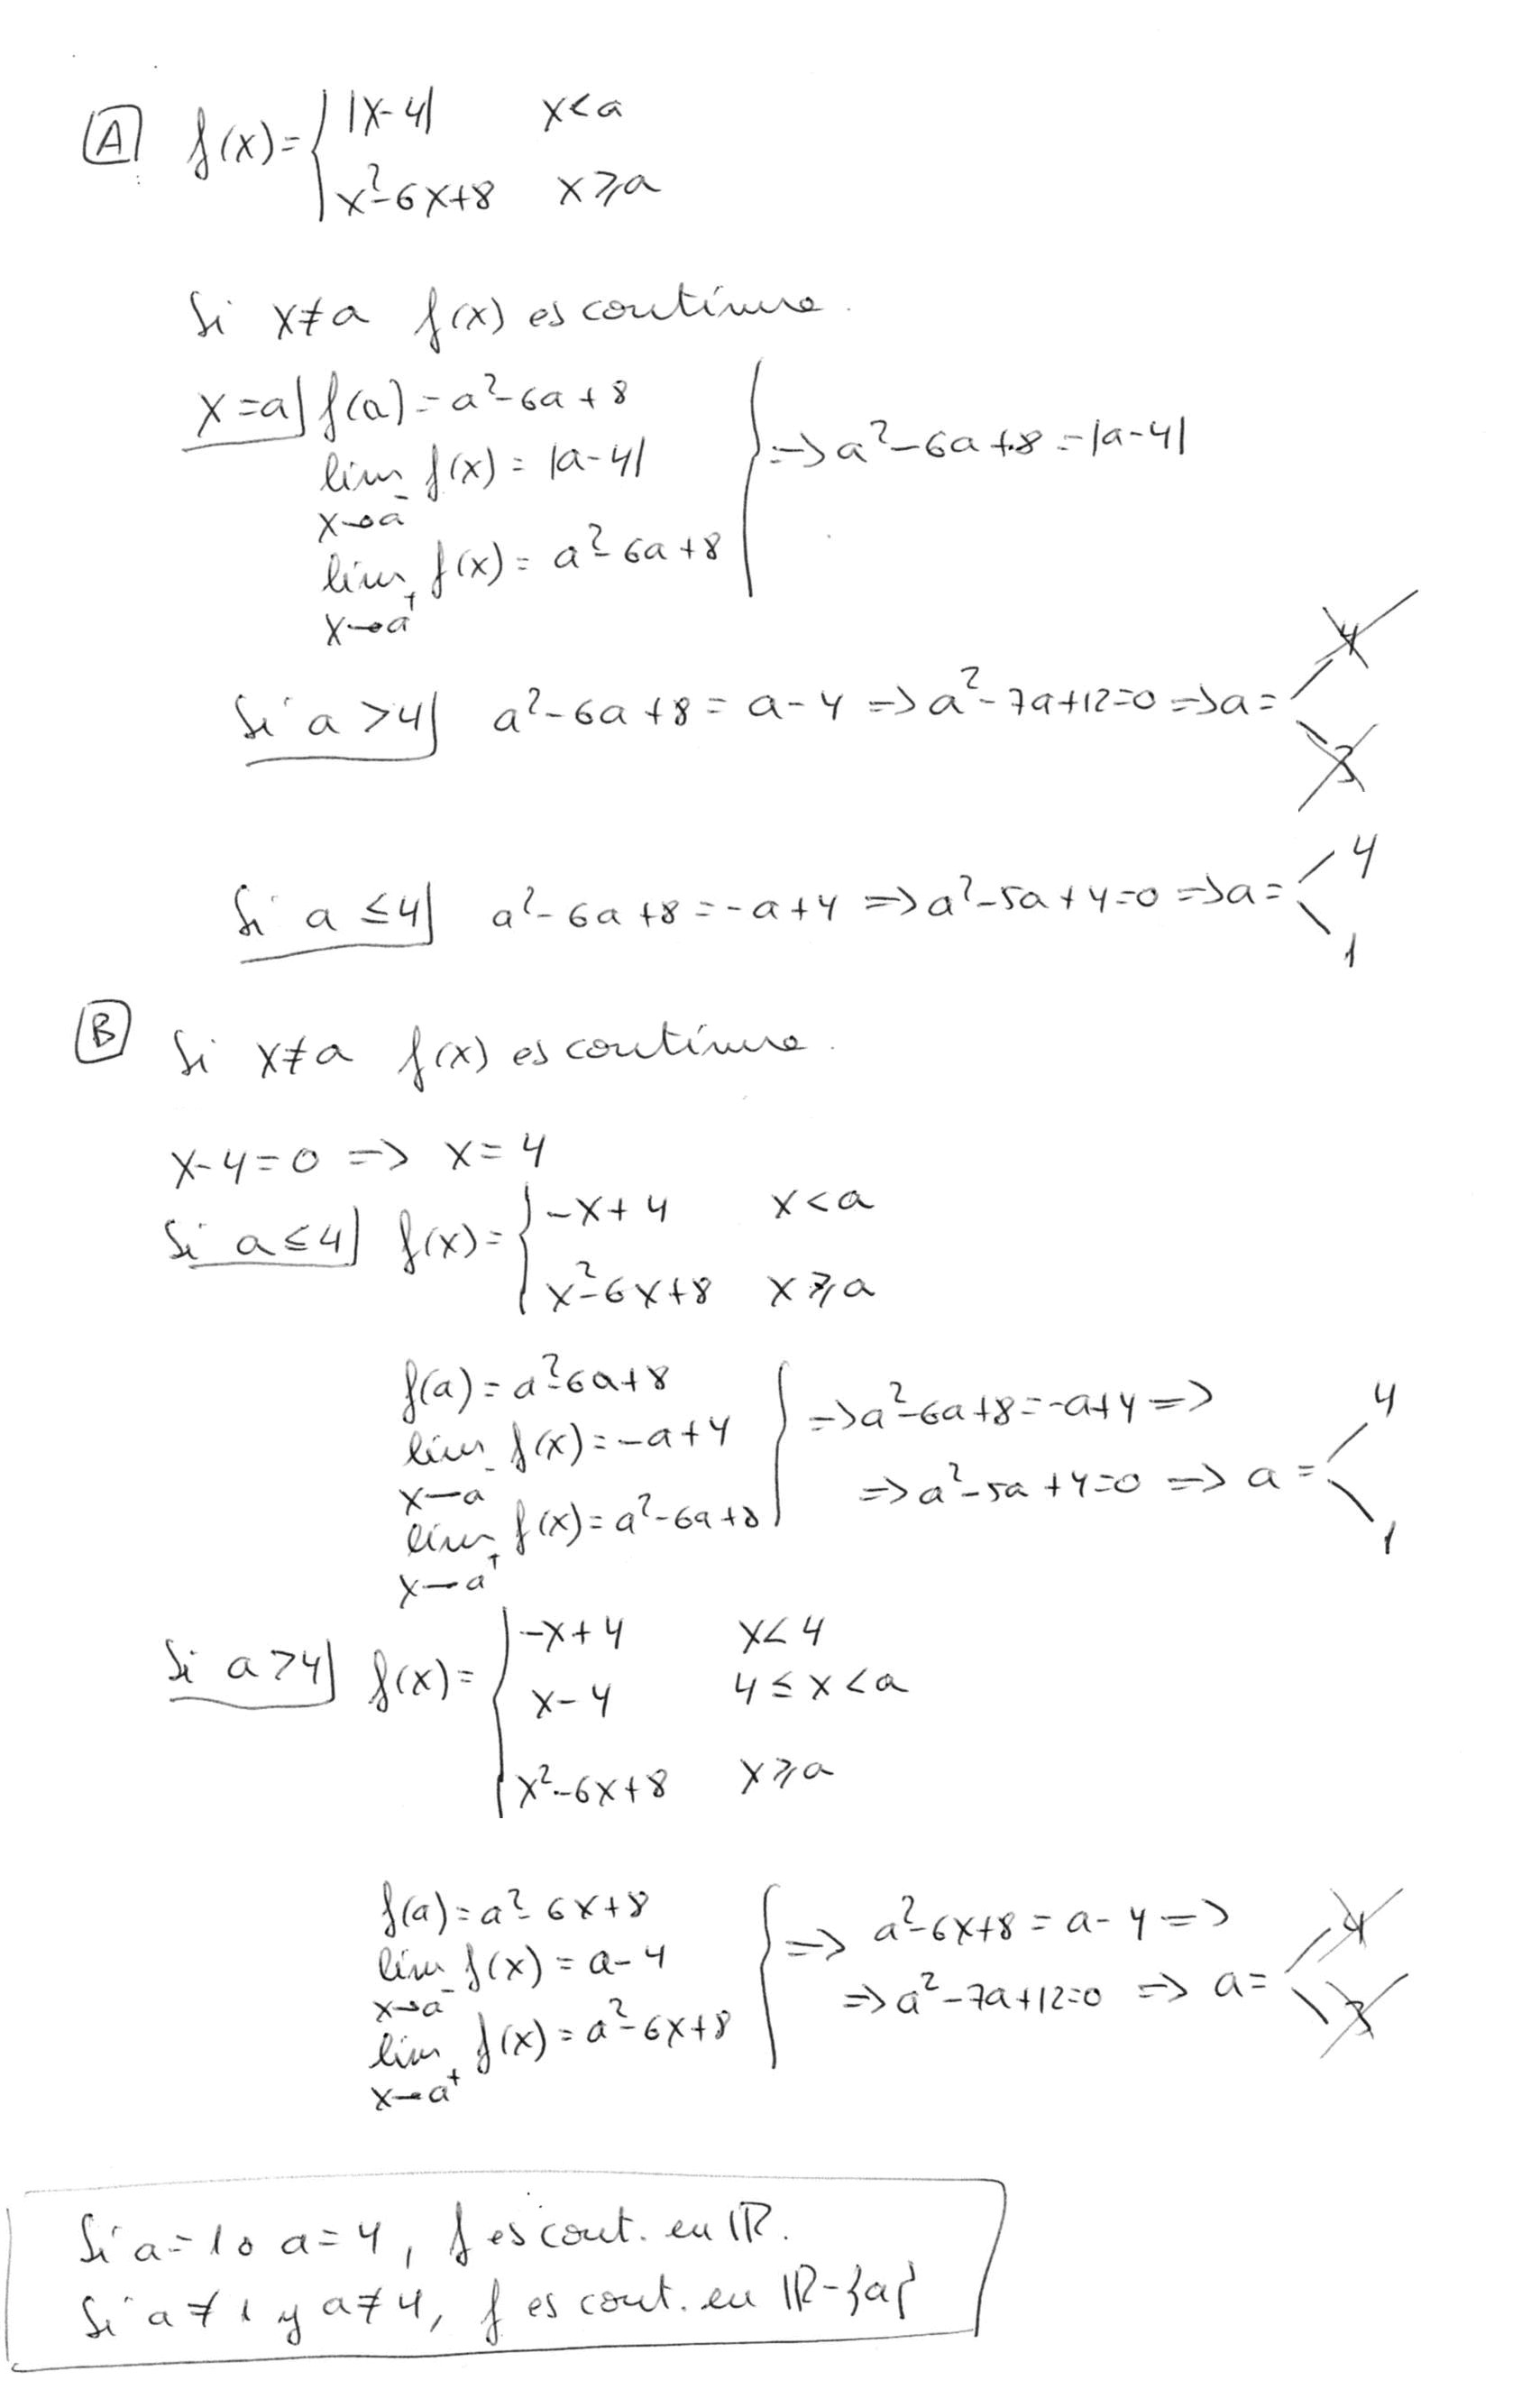 A f(x) = { |x-4| x<a
x²-6x+8 x⩾a
Si x≠a f(x) es continua.
x=a f(a) = a²-6a+8
lim x→a⁻ f(x) = |a-4| ⇒ a²-6a+8 = |a-4|
lim x→a⁺ f(x) = a²-6a+8
Si a>4 a²-6a+8 = a-4 ⇒ a²-7a+12=0 ⇒ a = 4 3
Si a≤4 a²-6a+8 = -a+4 ⇒ a²-5a+4=0 ⇒ a = 4 1
B Si x≠a f(x) es continua.
x-4=0 ⇒ x=4
Si a≤4 f(x) = { -x+4 x<a
x²-6x+8 x⩾a
f(a) = a²-6a+8 ⇒ a²-6a+8 = -a+4 ⇒
lim x→a⁻ f(x) = -a+4
lim x→a⁺ f(x) = a²-6a+8 ⇒ a²-5a+4=0 ⇒ a = 4 1
Si a>4 f(x) = { -x+4 x<4
x-4 4≤x<a
x²-6x+8 x⩾a
f(a) = a²-6x+8 ⇒ a²-6x+8 = a-4 ⇒
lim x→a⁻ f(x) = a-4
lim x→a⁺ f(x) = a²-6x+8 ⇒ a²-7a+12=0 ⇒ a = 4 3
Si a=1 o a=4, f es cont. en ℝ.
Si a≠1 y a≠4, f es cont. en ℝ-{a}